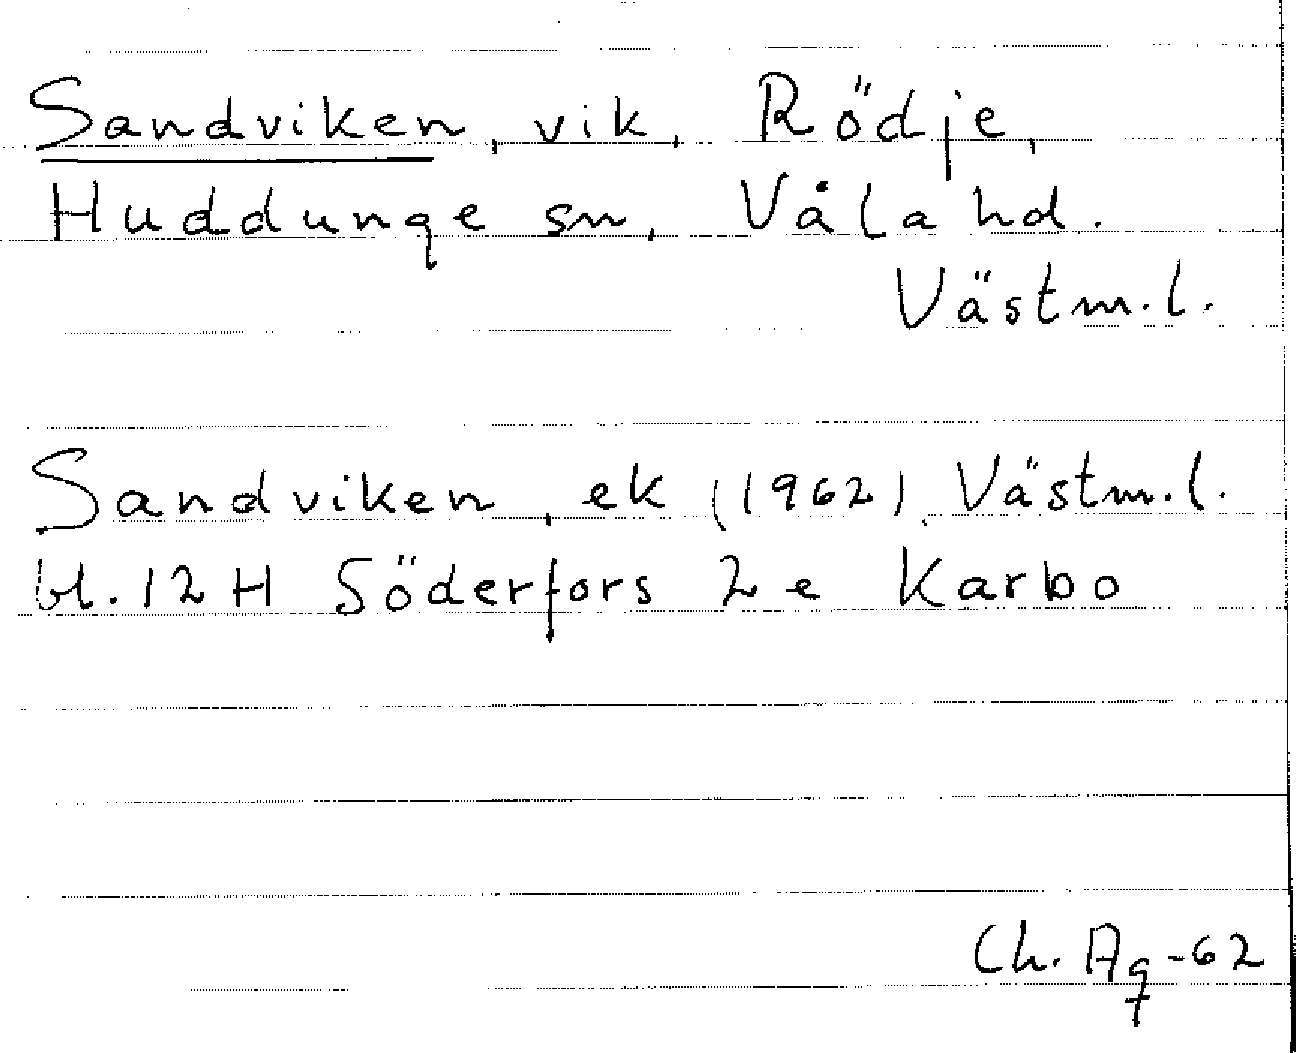 Sandviken, vik, Rödje,
Huddunge sn, Våla hd.
Västm.l.
Sandviken, ek (1962), Västm.l.
bl. 12 H Söderfors 2 e Karbo
Ch. Ag -62